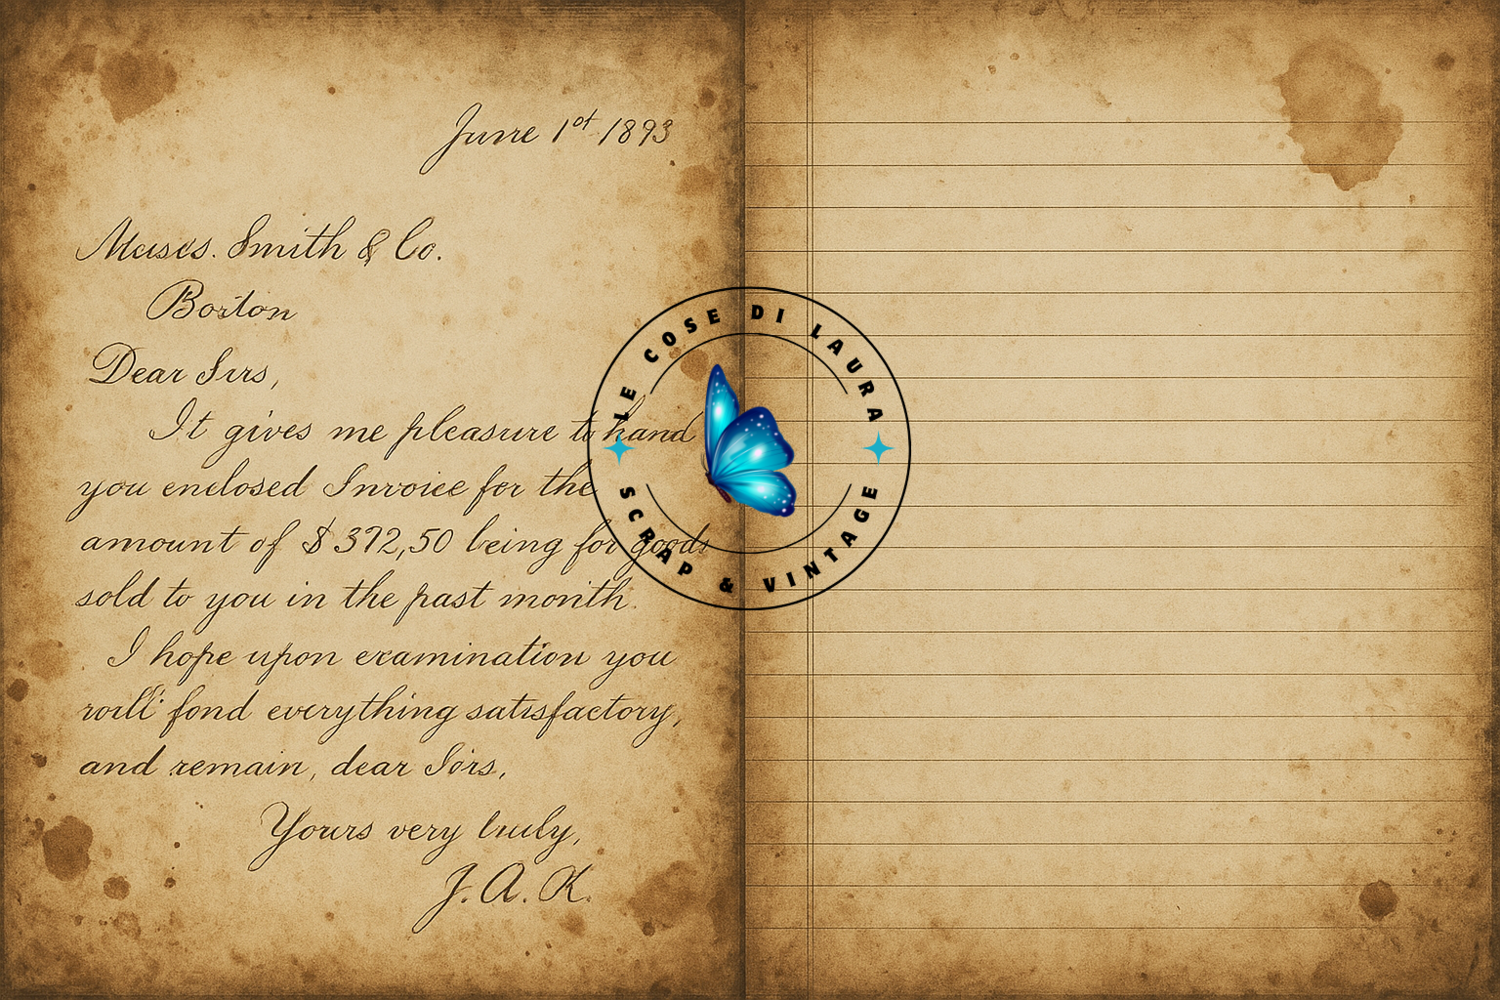 June 1st 1893
Smith & Co.
Boston
Dear Sirs,
It gives me pleasure to hand
you enclosed Invoice for the
amount of $372,50 being for goods
sold to you in the past month.
I hope upon examination you
will fond everything satisfactory,
and remain, dear Sirs,
Yours very truly,
J. A. K.
LE COSE DI LAURA
SCRAP & VINTAGE